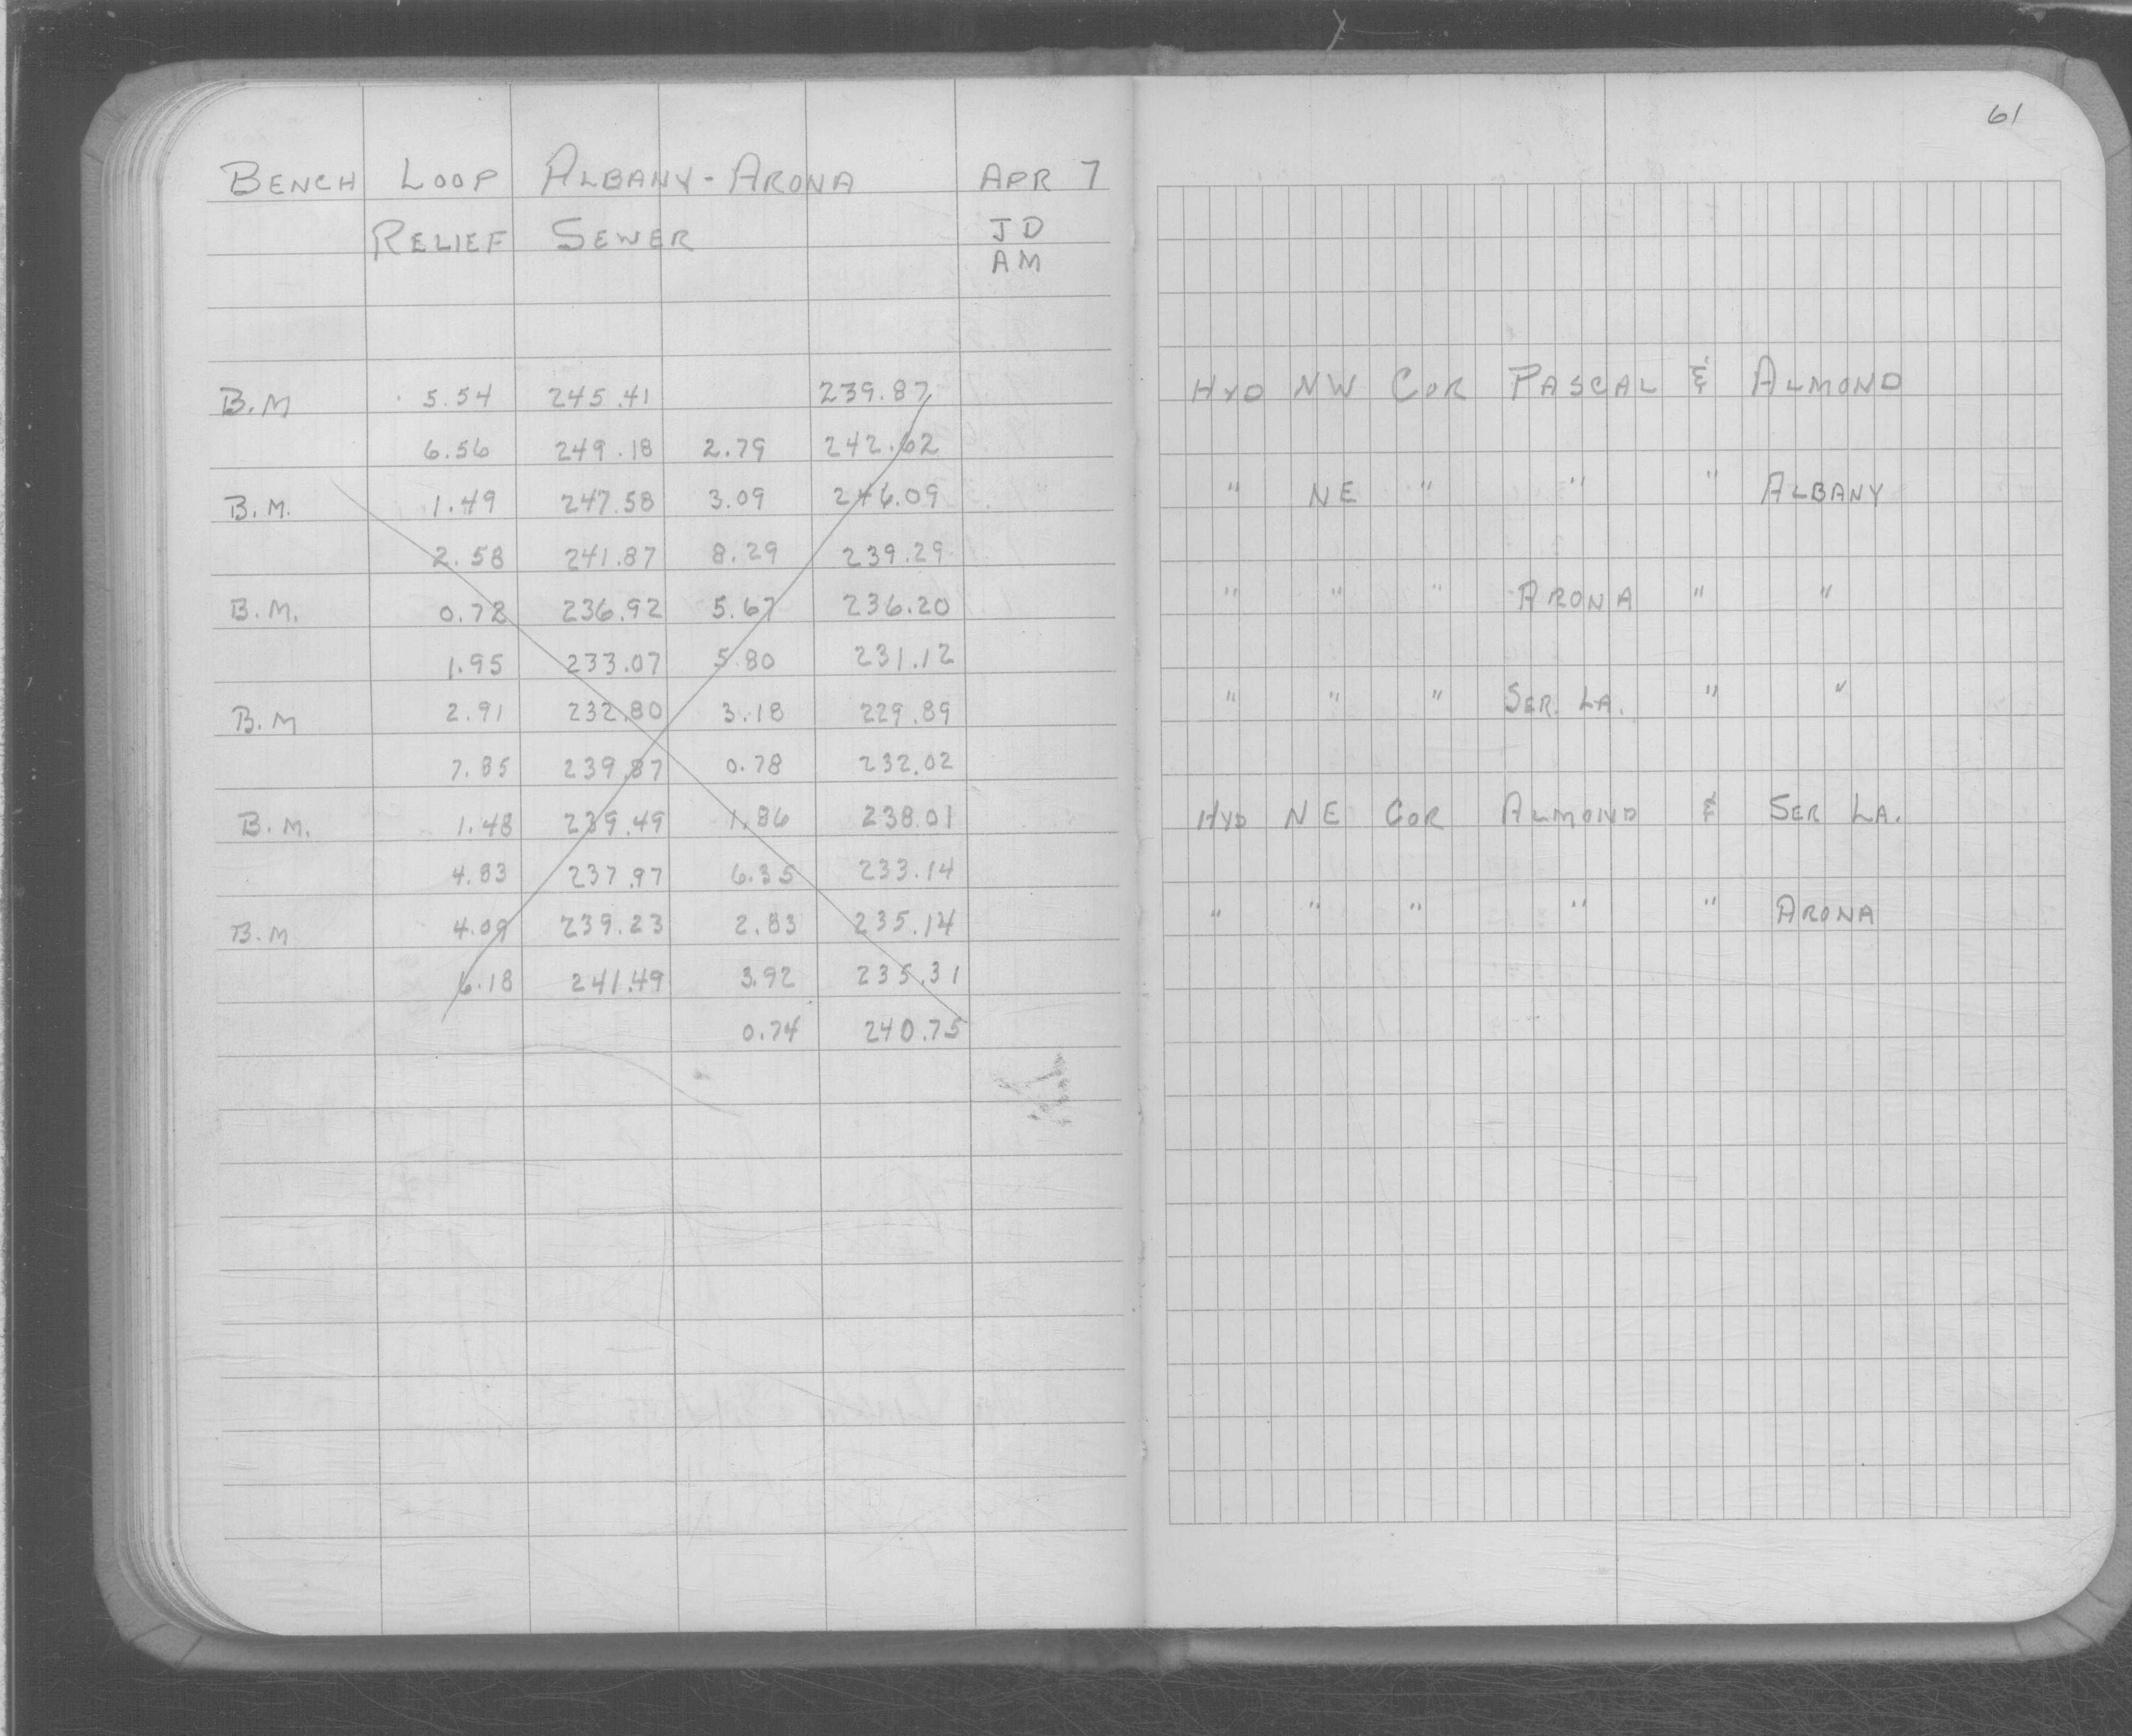 61
BENCH LOOP ALBANY-ARONA APR 7
RELIEF SEWER JD
AM
B.M 5.54 245.41 239.87 HYD NW COR PASCAL & ALMOND
6.56 249.18 2.79 242.62
B.M. 1.49 247.58 3.09 246.09 " NE " " " ALBANY
2.58 241.87 8.29 239.29
B.M. 0.72 236.92 5.67 236.20 " " " ARONA " "
1.95 233.07 5.80 231.12
B.M 2.91 232.80 3.18 229.89 " " " SER. LA. " "
7.85 239.87 0.78 232.02
B.M. 1.48 239.49 1.86 238.01 HYD NE COR ALMOND & SER LA.
4.83 237.97 6.35 233.14
B.M 4.09 239.23 2.83 235.14 " " " " " ARONA
6.18 241.49 3.92 235.31
0.74 240.75